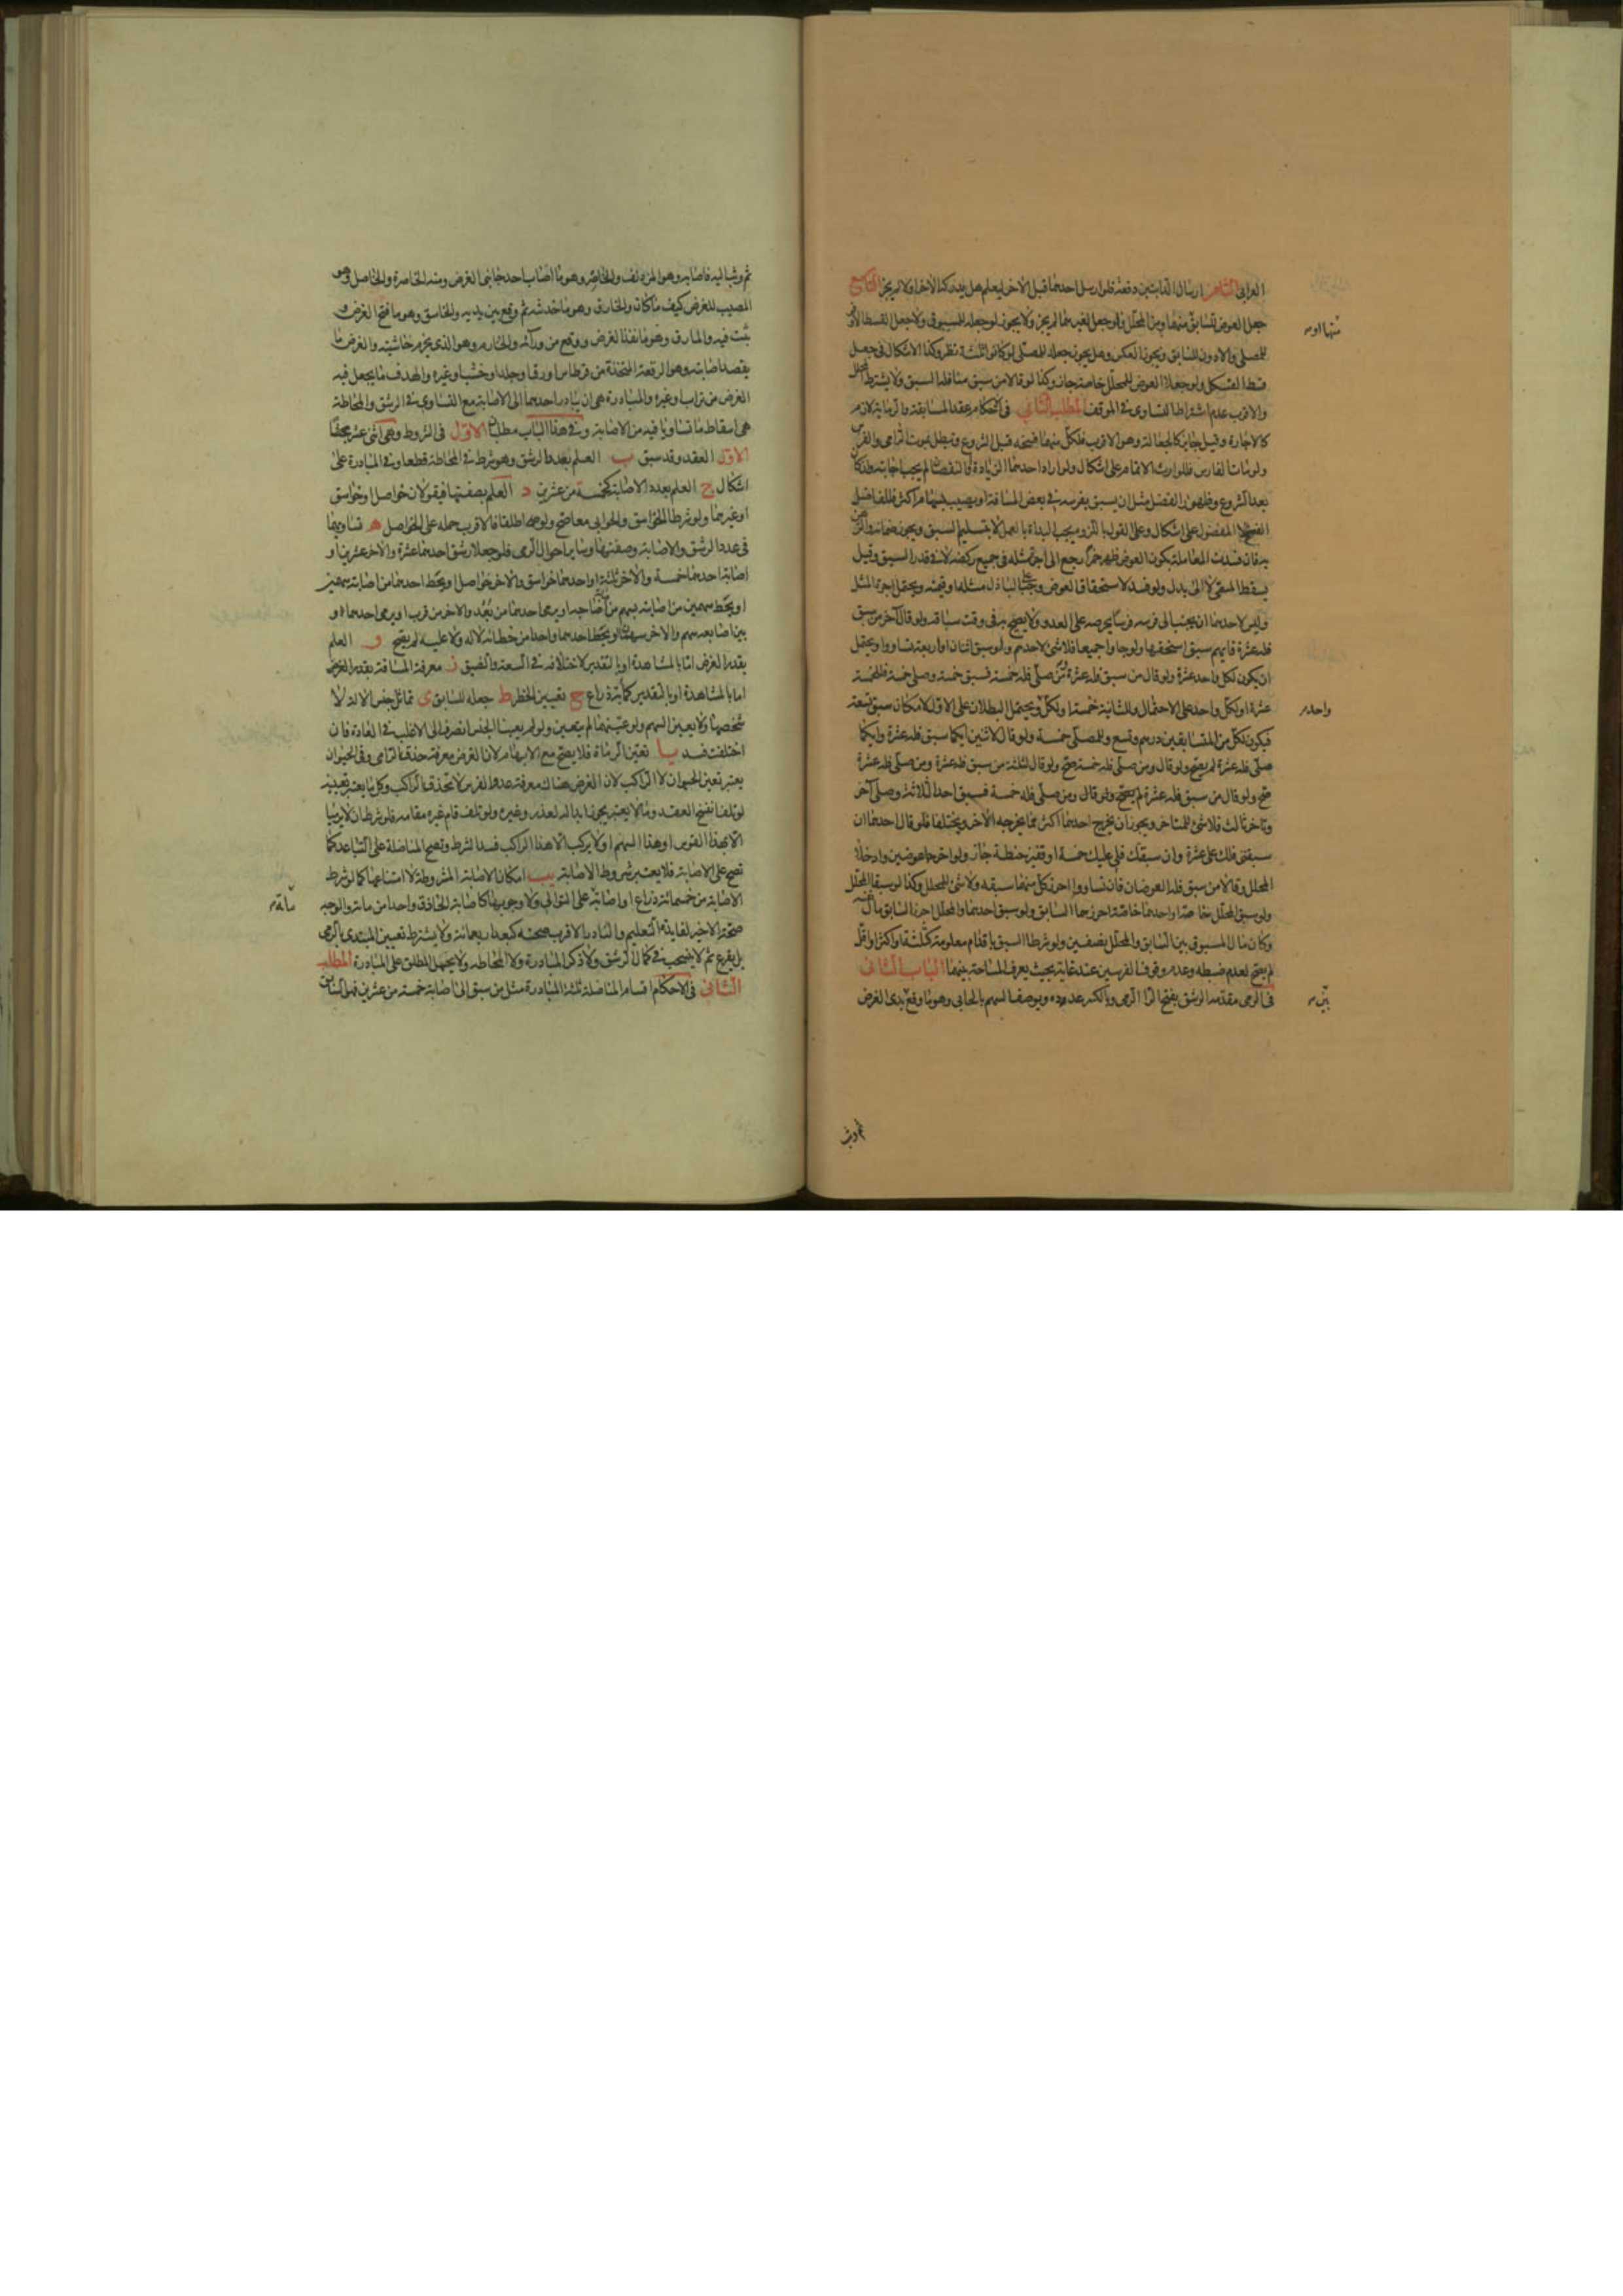 العرابى الثامن ارسال الدابتين دفعة فلو ارسل احدهما قبل الاخر ليعلم هل يدركه الاخر او لا لم يجز التاسع
جعل العوض للسابق منهما ومن المحلل فلو جعل لغيرهما لم يجز ولا يجوز لو جعله للمسبوق ولا جعل القسط الاوفر
منهما او
للمصلى والادون للسابق ويجوز العكس وهل يجوز جعله للمصلى لو كانوا ثلثة نظر وكذا الاشكال فى جعل
قسط الفسكل ولو جعلا العوض للمحلل خاصة جاز وكذا لو قالا من سبق منا فله السبق ولا يشترط المحلل
والاقرب عدم اشتراط التساوى فى الموقف المطلب الثانى فى احكام عقد المسابقة والرماية لازم
كالاجارة وقيل جايز كالجعالة وهو الاقرب فلكل منهما فسخه قبل الشروع وتبطل بموت الرامى والفرس
ولو مات الفارس فللوارث الاتمام على اشكال ولو اراد احدهما الزيادة او النقصان لم يجب اجابته ولو كان
بعد الشروع وظهور الفضل مثل ان يسبق بفرسه فى بعض المسافة او يصيب بسهام اكثر فللفاضل
الفسخ لا المفضول على اشكال وعلى القول باللزوم يجب البداة بالعمل لا بتسليم السبق ويجوز ضمانه والرهن
به فان فسدت المعاملة بكون العوض ظهر خمرا رجع الى اجرة مثله فى جميع ركضه لا فى قدر السبق وقيل
يسقط المسمى لا الى بدل ولو فسد لاستحقاق العوض وجب على الباذل مثله او قيمته ويحتمل اجرة المثل
وليس لاحدهما ان يجنب الى فرسه فرسا يحرضه على العدو ولا يصيح به فى وقت سباقه ولو قال آخر من سبق
فله عشرة فايهم سبق استحقها ولو جاوا جميعا فلا شئ لاحدهم ولو سبق اثنان او اربعة تساووا ويحتمل
ان يكون لكل واحد عشرة ولو قال من سبق فله عشرة ومن صلى فله خمسة فسبق خمسة وصلى خمسة فللخمسة
عشرة او لكل واحد على الاحتمال وللثانية خمسة او لكل ويحتمل البطلان على الاول لامكان سبق تسعة
واحد
فيكون لكل من المتسابقين درهم وتسع وللمصلى خمسة ولو قال لاثنين ايكما سبق فله عشرة وايكما
صلى فله عشرة لم يصح ولو قال ومن صلى فله خمسة صح ولو قال لثلثة من سبق فله عشرة ومن صلى فله عشرة
صح ولو قال من سبق فله عشرة لم يصح ولو قال ومن صلى فله خمسة فسبق احد الثلاثة وصلى آخر
وتاخر ثالث فلا شئ للمتاخر ويجوز ان يخرج احدهما اكثر مما يخرجه الآخر ويختلفا فلو قال احدهما ان
سبقتنى فلك على عشرة وان سبقتك فلى عليك خمسة او قفيز حنطة جاز ولو اخرجا عوضين وادخلا
المحلل وقالا من سبق فله العوضان فان تساووا احرز كل منهما سبقه ولا شئ للمحلل وكذا لو سبقا المحلل
ولو سبق المحلل خاصة او احدهما خاصة احرزهما السابق ولو سبق احدهما والمحلل احرز السابق مال نفسه
وكان مال المسبوق بين السابق والمحلل نصفين ولو شرطا السبق باقدام معلومة كثلثة او اكثر او اقل
لم يصح لعدم ضبطه وعدم وقوف الفرسين عند غاية بحيث يعرف المساحة بينهما الباب الثانى
فى الرمى مقدمة الرشق بفتح الرا الرمى وبالكسر عدده ويوصف السهم بالحابى وهو ما وقع بين يدى الغرض
بين
ثم وثب
ثم وثب اليه فاصابه وهو المزدلف والخاصر وهو ما اصاب احد جانبى الغرض ومنه الخاصرة والخاصل وهو
المصيب للغرض كيف ما كان والخارق وهو ما خدشه ثم وقع بين يديه والخاسق وهو ما فتح الغرض و
ثبت فيه والمارق وهو ما نفذ الغرض ووقع من ورآئه والخارم وهو الذى يخرم حاشيته والغرض ما
يقصد اصابته وهو الرقعة المتخذة من قرطاس او رق او جلد او خشب او غيره والهدف ما يجعل فيه
الغرض من تراب او غيره والمبادرة هى ان يبادر احدهما الى الاصابة مع التساوى فى الرشق والمحاطة
هى اسقاط ما تساويا فيه من الاصابة وفى هذا الباب مطلبان الاول فى الشروط وهى اثنى عشر بحثا
الاول العقد وقد سبق ب العلم بعدد الرشق وهو شرط فى المحاطة قطعا وفى المبادرة على
اشكال ج العلم بعدد الاصابة كخمسة من عشرين د العلم بصفتها فيقولان خواصل او خواسق
او غيرهما ولو شرطا الخواسق والحوابى معا صح ولو اطلقا فالاقرب حمله على الخواصل ه تساويهما
فى عدد الرشق والاصابة وصفتها وساير احوال الرمى فلو جعلا رشق احدهما عشرة والاخر عشرين او
اصابة احدهما خمسة والاخر ثلثة او احدهما خواسق والاخر خواصل او يحط احدهما من اصابته سهمين
او يحط سهمين من اصابته بسهم من اصابة صاحبه او يرمى احدهما من بعد والاخر من قرب او يرمى احدهما و
بين اصابعه سهم والاخر سهمان او يحط احدهما واحدا من خطائه لا له ولا عليه لم يصح و العلم
بقدر الغرض اما بالمشاهدة او بالتقدير لاختلافه فى السعة والضيق ز معرفة المسافة بقدر الغرض
اما بالمشاهدة او بالتقدير كمأة ذراع ح تعيين الخطر ط جعله للسابق ى تماثل جنس الالة لا
شخصها ولا يعين السهم ولو عينهما لم يتعين ولو لم يعينا الجنس انصرف الى الاغلب فى العادة فان
اختلفت فسد يا تعين الرماة فلا يصح مع الابهام لان الغرض معرفة حذق الرامى وفى الحيوان
يعتبر تعين الحيوان لا الراكب لان الغرض هناك معرفة عدو الفرس لا تحذق الراكب وكل ما يعتبر تعيينه
لو تلف انفسخ العقد وما لا يعتبر يجوز ابداله لعذر وغيره ولو تلف قام غيره مقامه فلو شرطا ان لا يرميا
الا بهذا القوس او هذا السهم او لا يركب الا هذا الراكب فسد الشرط وتصح المناضلة على التباعد كما
تصح على الاصابة فلا يعتبر شروط الاصابة يب امكان الاصابة المشروطة لا امتناعها كما لو شرط
الاصابة من خمسمائة ذراع او اصابة على التوالى ولا وجوبها كاصابة الحاذق واحدا من مائة والوجه
مأة
صحة الاخير لفايدة التعليم والنادر الاقرب صحته كبعد اربعمائة ولا يشترط تعيين المبتدى بالرمى
بل يقرع ثم لا ينسحب فى كمال الرشق ولا ذكر المبادرة ولا المحاطة ولا يحمل المطلق على المبادرة المطلب
الثانى فى الاحكام اقسام المناضلة ثلثة المبادرة مثل من سبق الى اصابة خمسة من عشرين فهو السابق